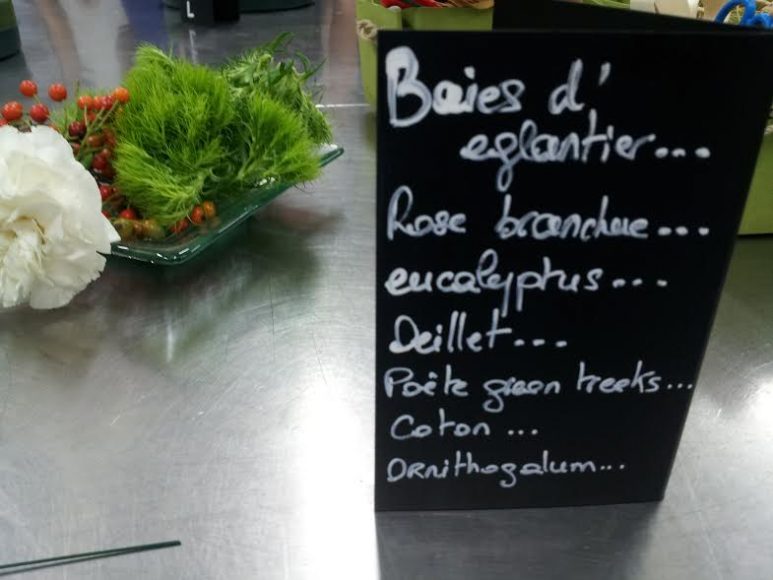 L
Baies d'
eglantier...
Rose branchue...
eucalyptus...
Oeillet...
Poète green treeks...
Coton ...
Ornithogalum...